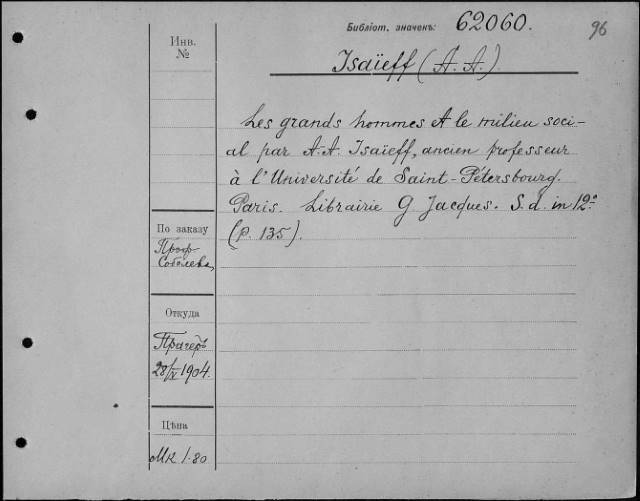 Библіот. значекъ: 62060.
96
Инв.
№
Isaïeff (A. A.)
Les grands hommes et le milieu soci-
al par A. A. Isaïeff, ancien professeur
à l'Université de Saint-Pétersbourg.
Paris. Librairie G. Jacques. S. d. in 12º
(p. 135).
По заказу
Проф.
Соболева,
Откуда
Прагеръ
28/X 1904.
Цѣна
Mk 1.80